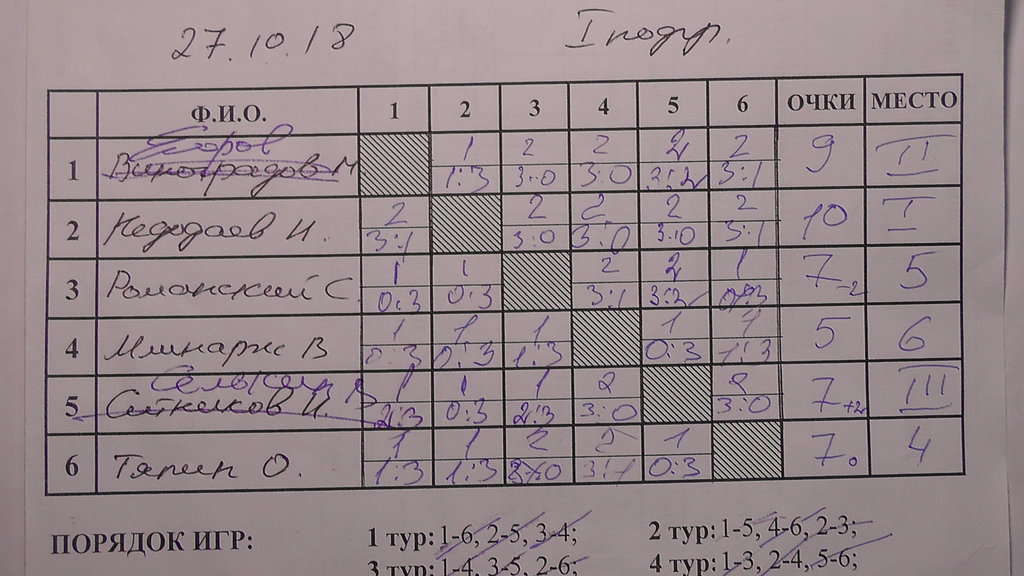 27.10.18 I подгр.
Ф.И.О. 1 2 3 4 5 6 ОЧКИ МЕСТО
Егоров
1 Виноградов М 1 2 2 2 2 9 II
1:3 3:0 3:0 3:2 3:1
2 Недодаев И. 2 2 2 2 2 10 I
3:1 3:0 3:0 3:0 3:1
3 Романский С 1 1 2 2 1 7 -2 5
0:3 0:3 3:1 3:2 0:3
4 Млинарж В 1 1 1 1 1 5 6
0:3 0:3 1:3 0:3 1:3
5 Ситников И. 1 1 1 2 2 7 +2 III
2:3 0:3 2:3 3:0 3:0
6 Тяпин О. 1 1 2 2 1 7 0 4
1:3 1:3 3:0 3:1 0:3
ПОРЯДОК ИГР: 1 тур: 1-6, 2-5, 3-4; 2 тур: 1-5, 4-6, 2-3;
3 тур: 1-4, 3-5, 2-6; 4 тур: 1-3, 2-4, 5-6;